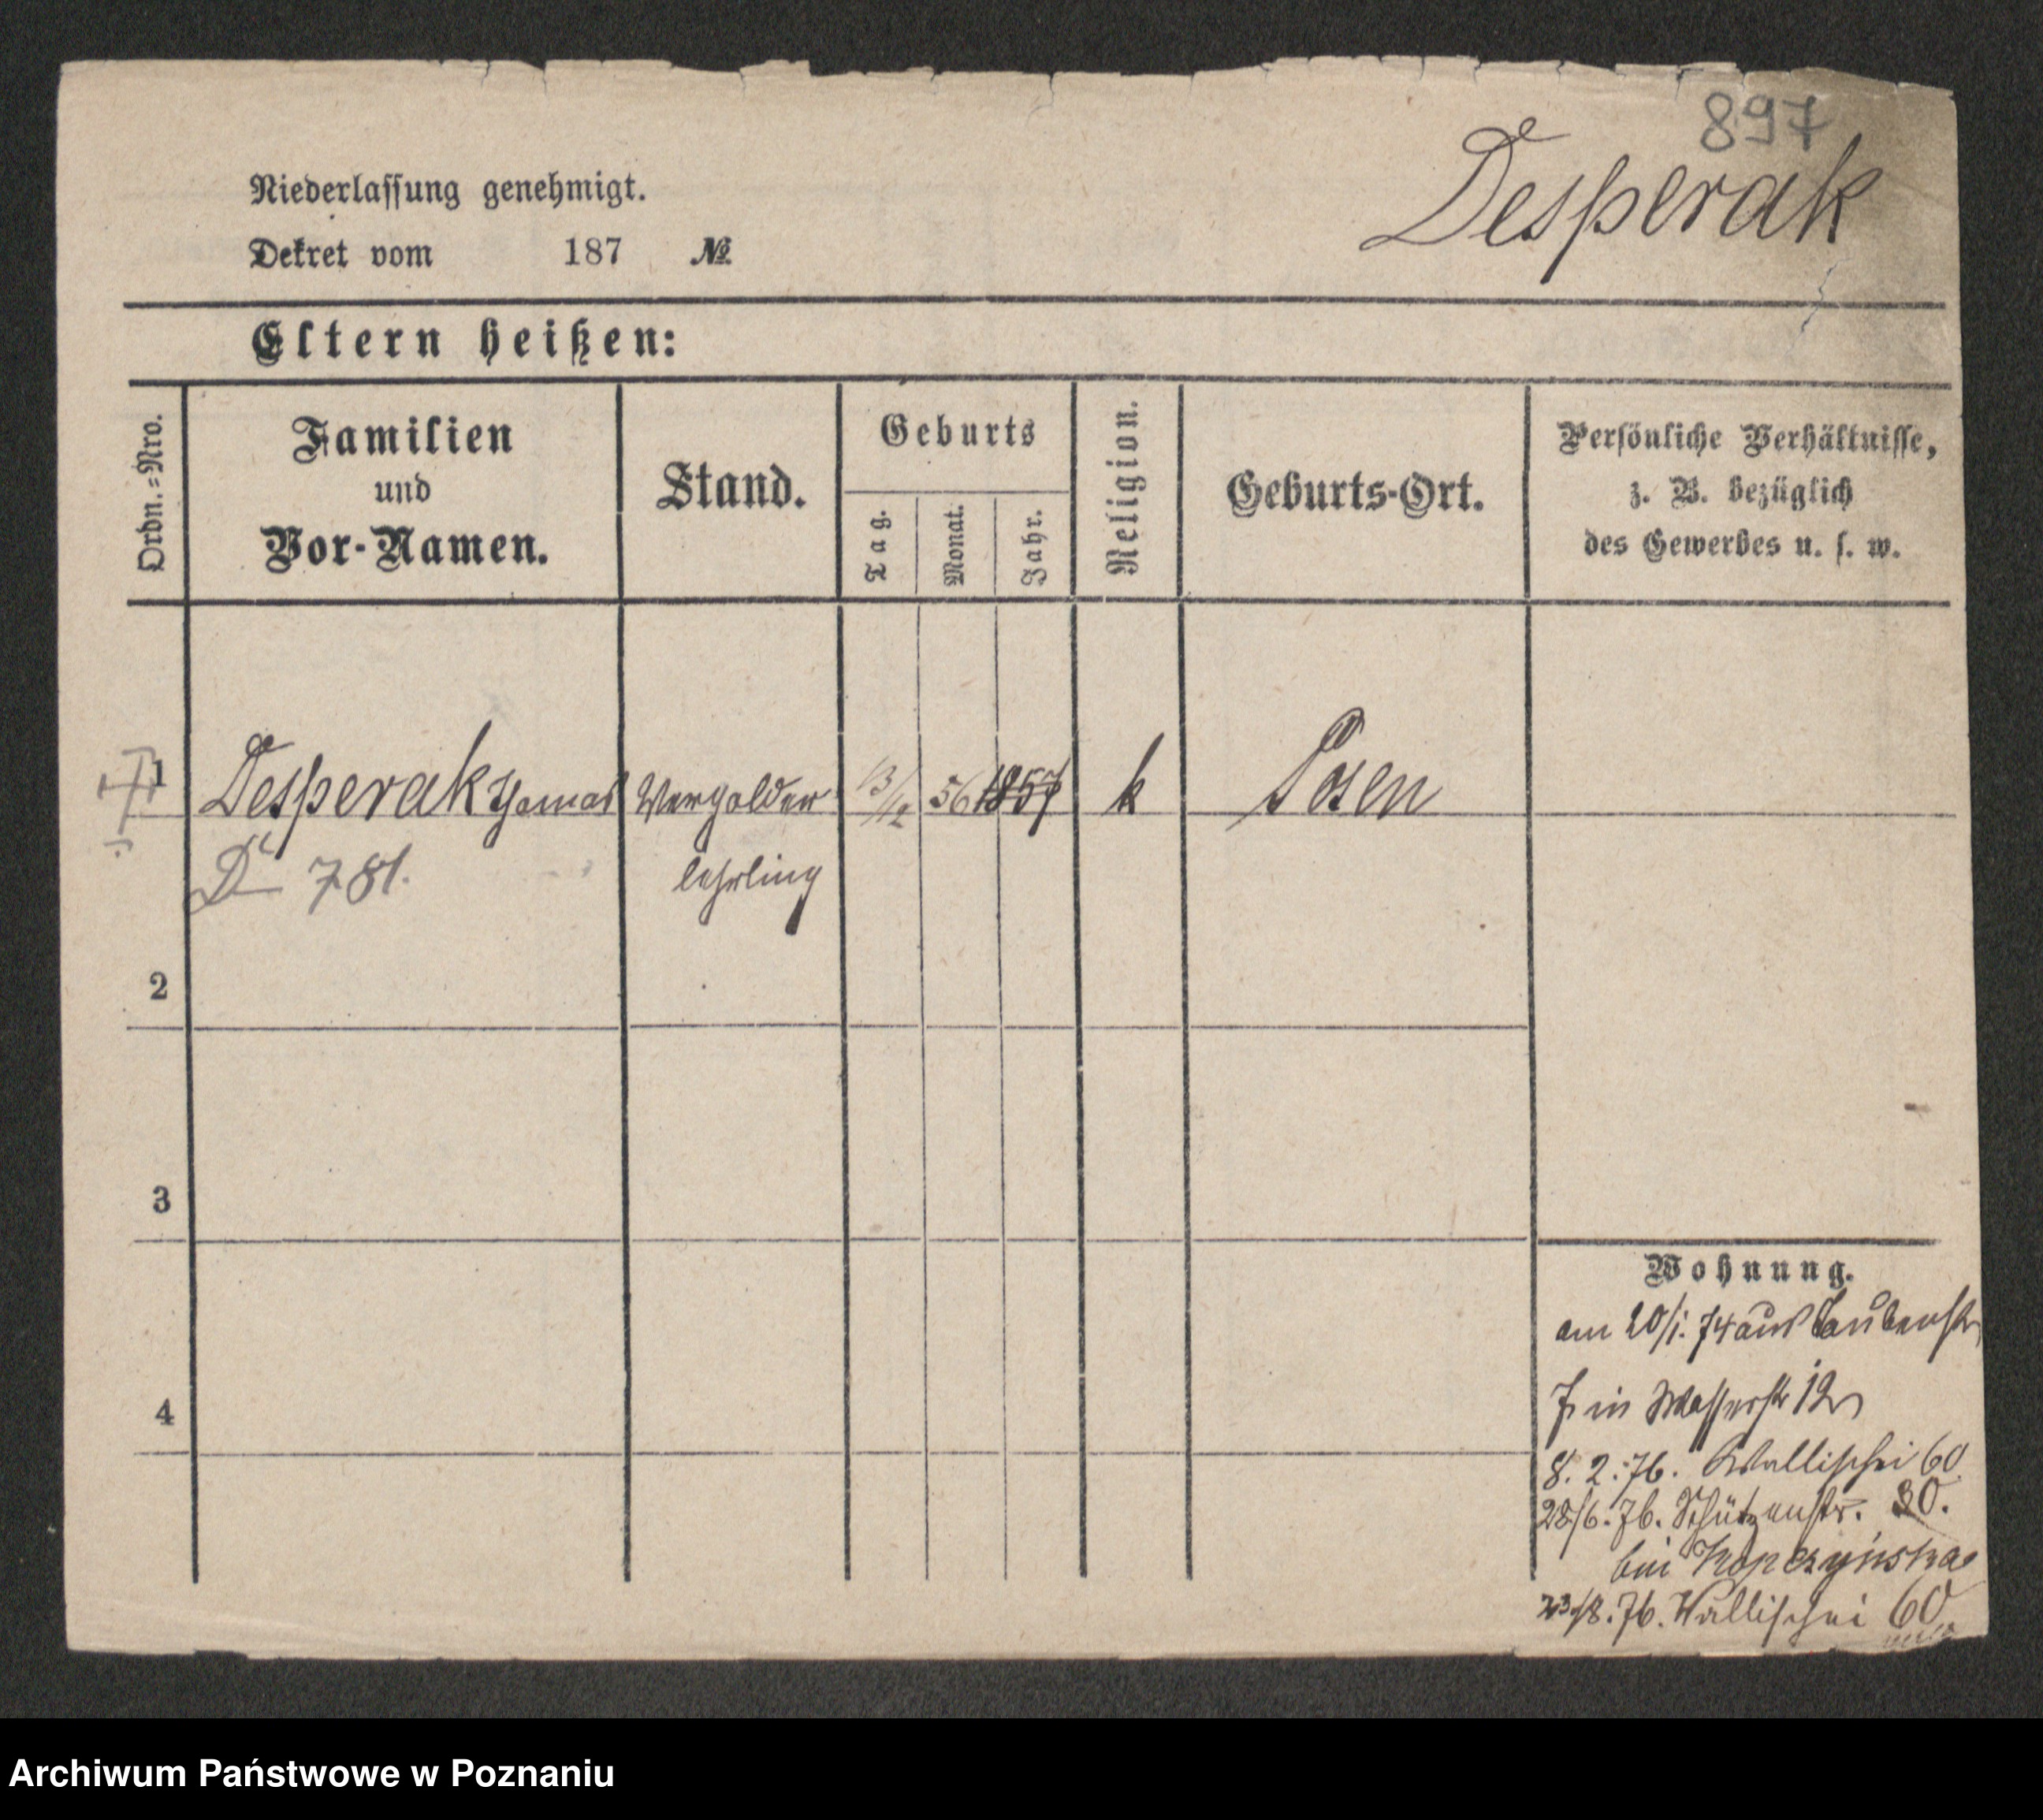 897
Desperak
Niederlassung genehmigt.
Dekret vom 187 №
Eltern heißen:
Ordn.=Nro.
Familien
und
Vor-Namen.
Stand.
Geburts
Tag.
Monat.
Jahr.
Religion.
Geburts-Ort.
Persönliche Verhältnisse,
z. B. bezüglich
des Gewerbes u. s. w.
1 Desperak Thomas Vergolder 13/12 56 1857 k Posen
lehrling
781.
2
3
4
Wohnung.
am 20/1. 74 aus Taubenstr
7. in Wasserstr 12
8. 2. 76. Wallischei 60
28/6. 76. Schützenstr. 30.
bei Kopczyńska
23/8. 76. Wallischei 60.
Archiwum Państwowe w Poznaniu